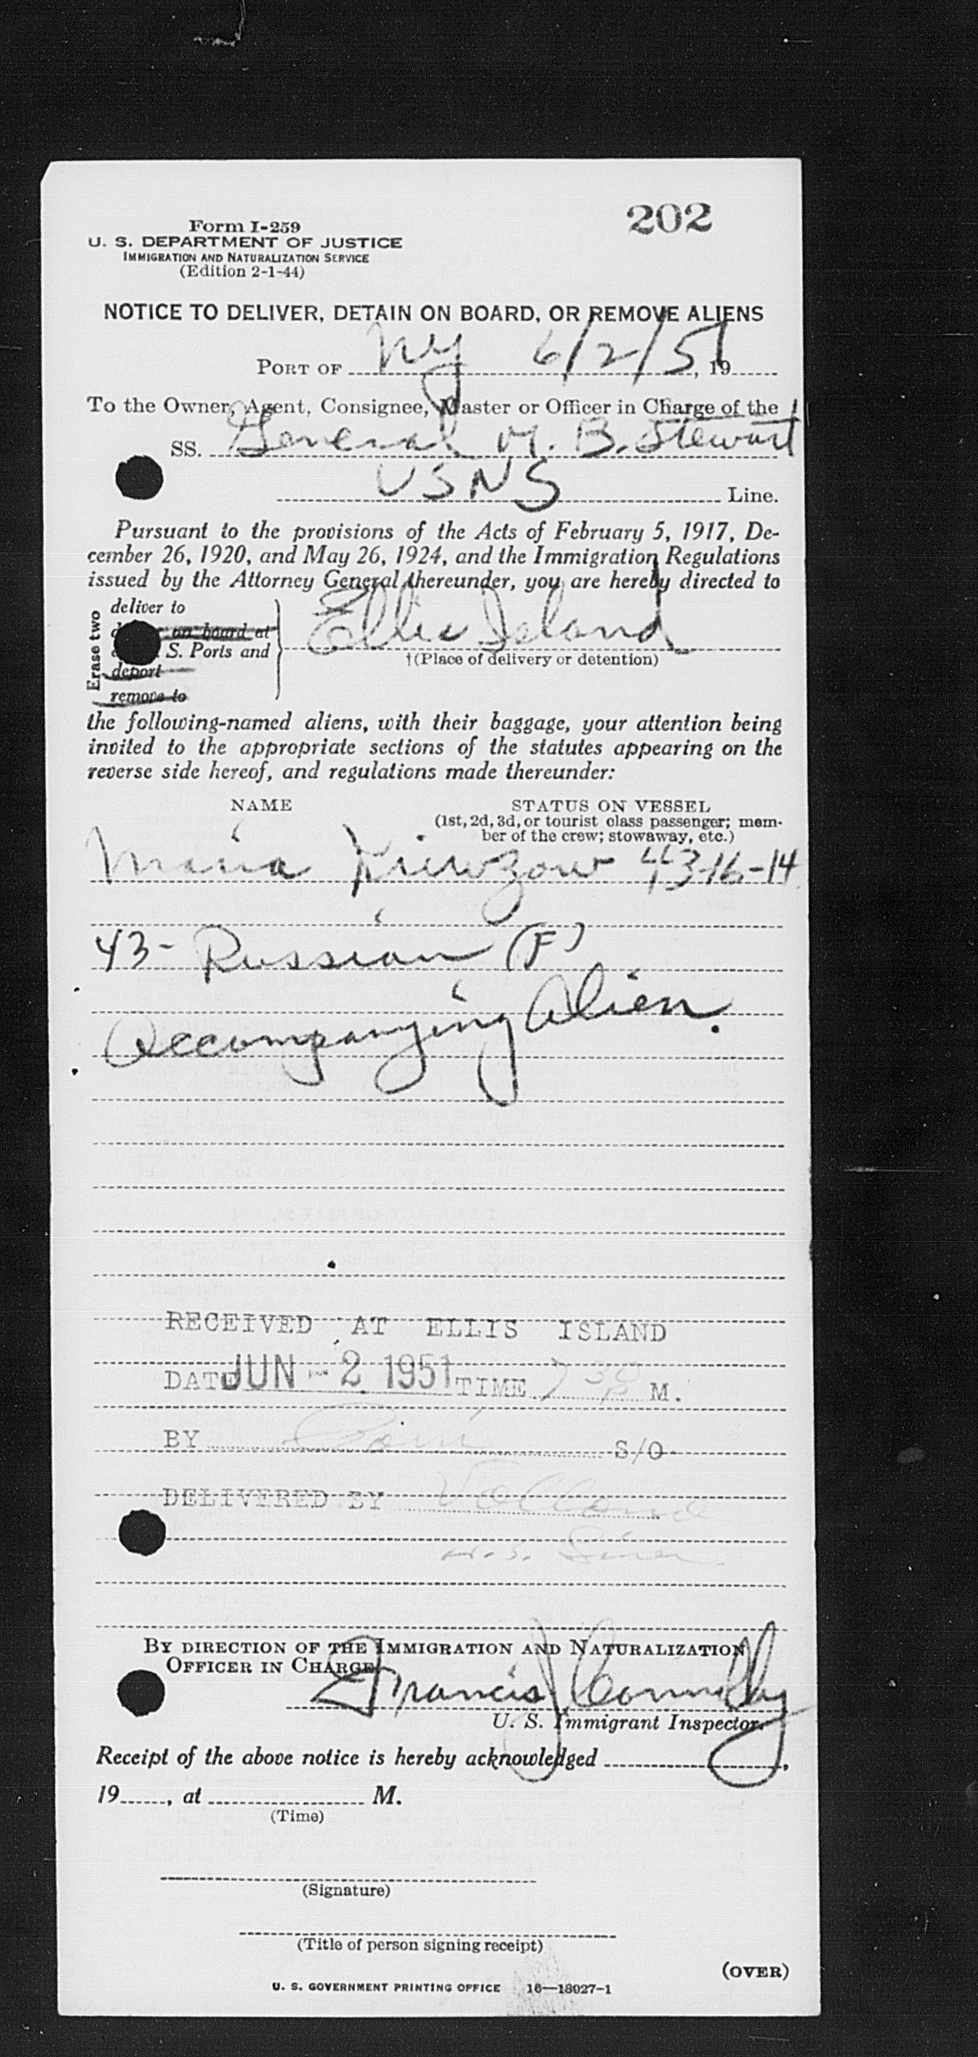 202
Form I-259
U. S. DEPARTMENT OF JUSTICE
IMMIGRATION AND NATURALIZATION SERVICE
(Edition 2-1-44)
NOTICE TO DELIVER, DETAIN ON BOARD, OR REMOVE ALIENS
PORT OF NY 6/2/51, 19
To the Owner, Agent, Consignee, Master or Officer in Charge of the
SS. General M. B. Stewart
USNS Line.
Pursuant to the provisions of the Acts of February 5, 1917, De-
cember 26, 1920, and May 26, 1924, and the Immigration Regulations
issued by the Attorney General thereunder, you are hereby directed to
Erase two
deliver to
on board at
S. Ports and
deport
remove to
Ellis Island
†(Place of delivery or detention)
the following-named aliens, with their baggage, your attention being
invited to the appropriate sections of the statutes appearing on the
reverse side hereof, and regulations made thereunder:
NAME STATUS ON VESSEL
(1st, 2d, 3d, or tourist class passenger; mem-
ber of the crew; stowaway, etc.)
Maria Kriwzow 43-16-14
43- Russian (F)
Accompanying Alien.
RECEIVED AT ELLIS ISLAND
DATE JUN - 2 1951 TIME 7 30 P M.
BY S/O
DELIVERED BY
U.S.
BY DIRECTION OF THE IMMIGRATION AND NATURALIZATION
OFFICER IN CHARGE
Francis J Connolly
U. S. Immigrant Inspector.
Receipt of the above notice is hereby acknowledged ,
19 , at M.
(Time)
(Signature)
(Title of person signing receipt)
(OVER)
U. S. GOVERNMENT PRINTING OFFICE 16—18027-1